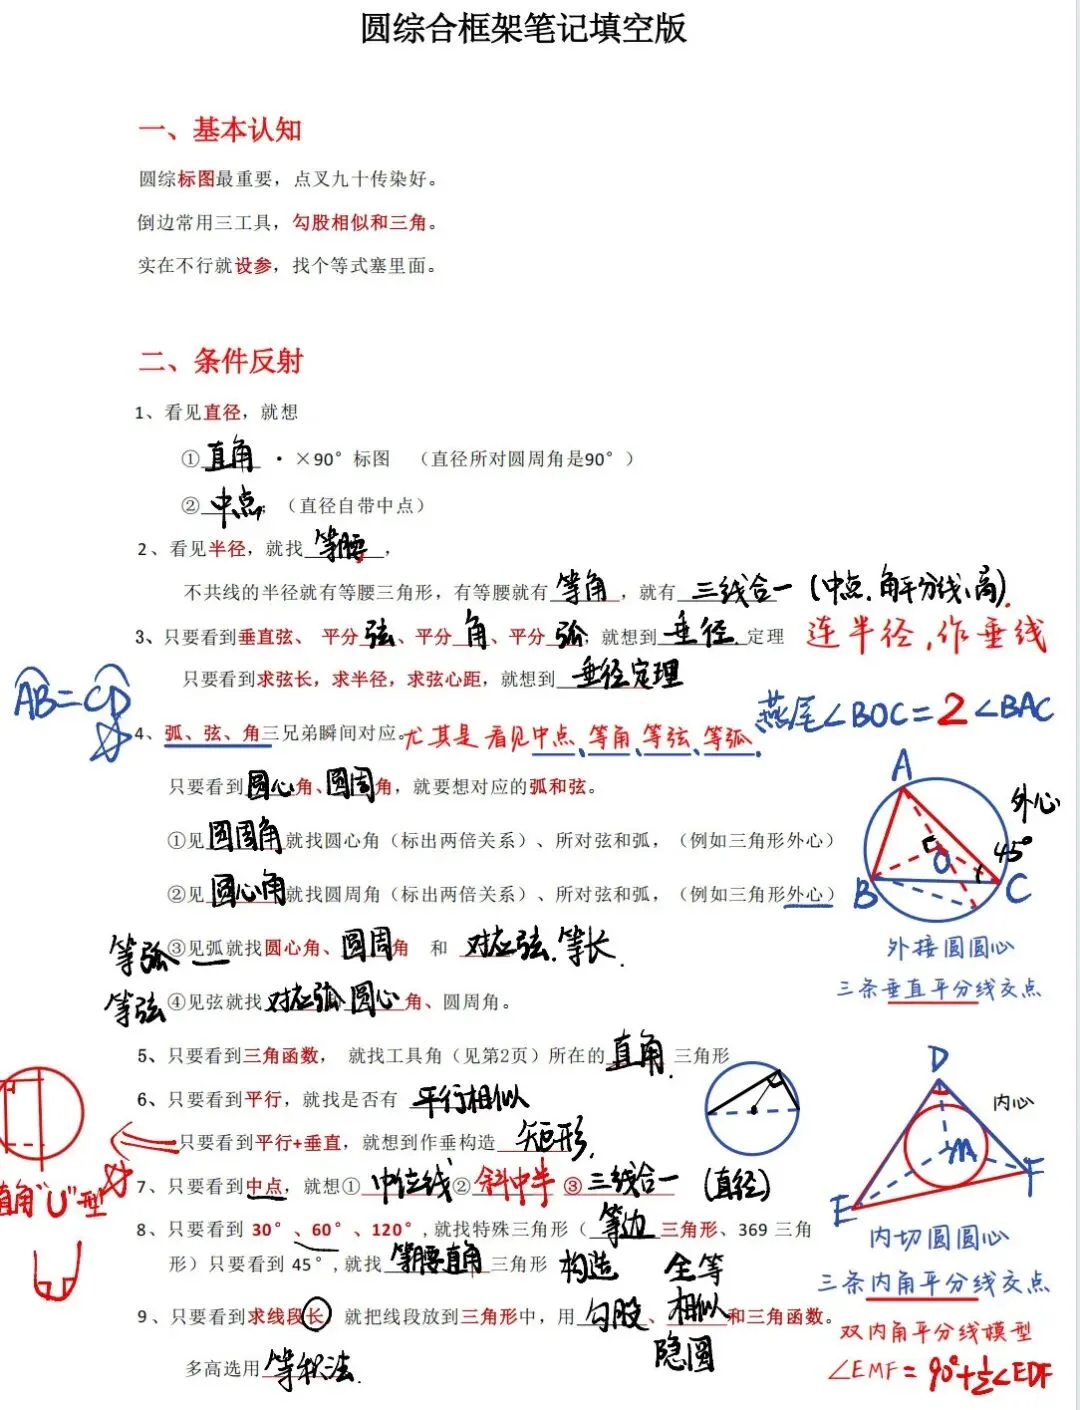 圆综合框架笔记填空版
一、基本认知
圆综标图最重要，点叉九十传染好。
倒边常用三工具，勾股相似和三角。
实在不行就设参，找个等式塞里面。
二、条件反射
1、看见直径，就想
①直角 · ×90°标图 （直径所对圆周角是90°）
②中点；（直径自带中点）
2、看见半径，就找等腰，
不共线的半径就有等腰三角形，有等腰就有等角，就有三线合一（中点、角平分线、高）.
3、只要看到垂直弦、平分弦、平分角、平分弧；就想到垂径.定理 连半径，作垂线
只要看到求弦长，求半径，求弦心距，就想到垂径定理
AB=CD
燕尾∠BOC=2∠BAC
4、弧、弦、角三兄弟瞬间对应。尤其是看见中点、等角、等弦、等弧.
只要看到圆心角、圆周角，就要想对应的弧和弦。
①见圆周角就找圆心角（标出两倍关系）、所对弦和弧，（例如三角形外心）
②见圆心角就找圆周角（标出两倍关系）、所对弦和弧，（例如三角形外心）
等弧 ③见弧就找圆心角、圆周角 和 对应弦.等长.
等弦 ④见弦就找对应弧 圆心角、圆周角。
A
外心
45°
O
B
C
外接圆圆心
三条垂直平分线交点
5、只要看到三角函数， 就找工具角（见第2页）所在的直角三角形
6、只要看到平行，就找是否有 平行相似
只要看到平行+垂直，就想到作垂构造矩形.
直角“U”型
7、只要看到中点，就想①中位线②斜中半 ③三线合一 (直径)
8、只要看到 30°、60°、120°,就找特殊三角形（等边三角形、369 三角
形）只要看到 45°,就找等腰直角三角形 构造 全等
9、只要看到求线段长 就把线段放到三角形中，用勾股、相似和三角函数。
隐圆
多高选用等积法.
D
内心
M
E
F
内切圆圆心
三条内角平分线交点
双内角平分线模型
∠EMF=90°+½∠EDF